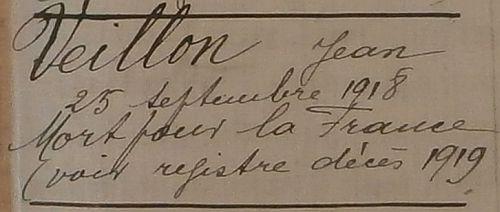 Veillon Jean
25 septembre 1918
Mort pour la France
(voir registre décès 1919